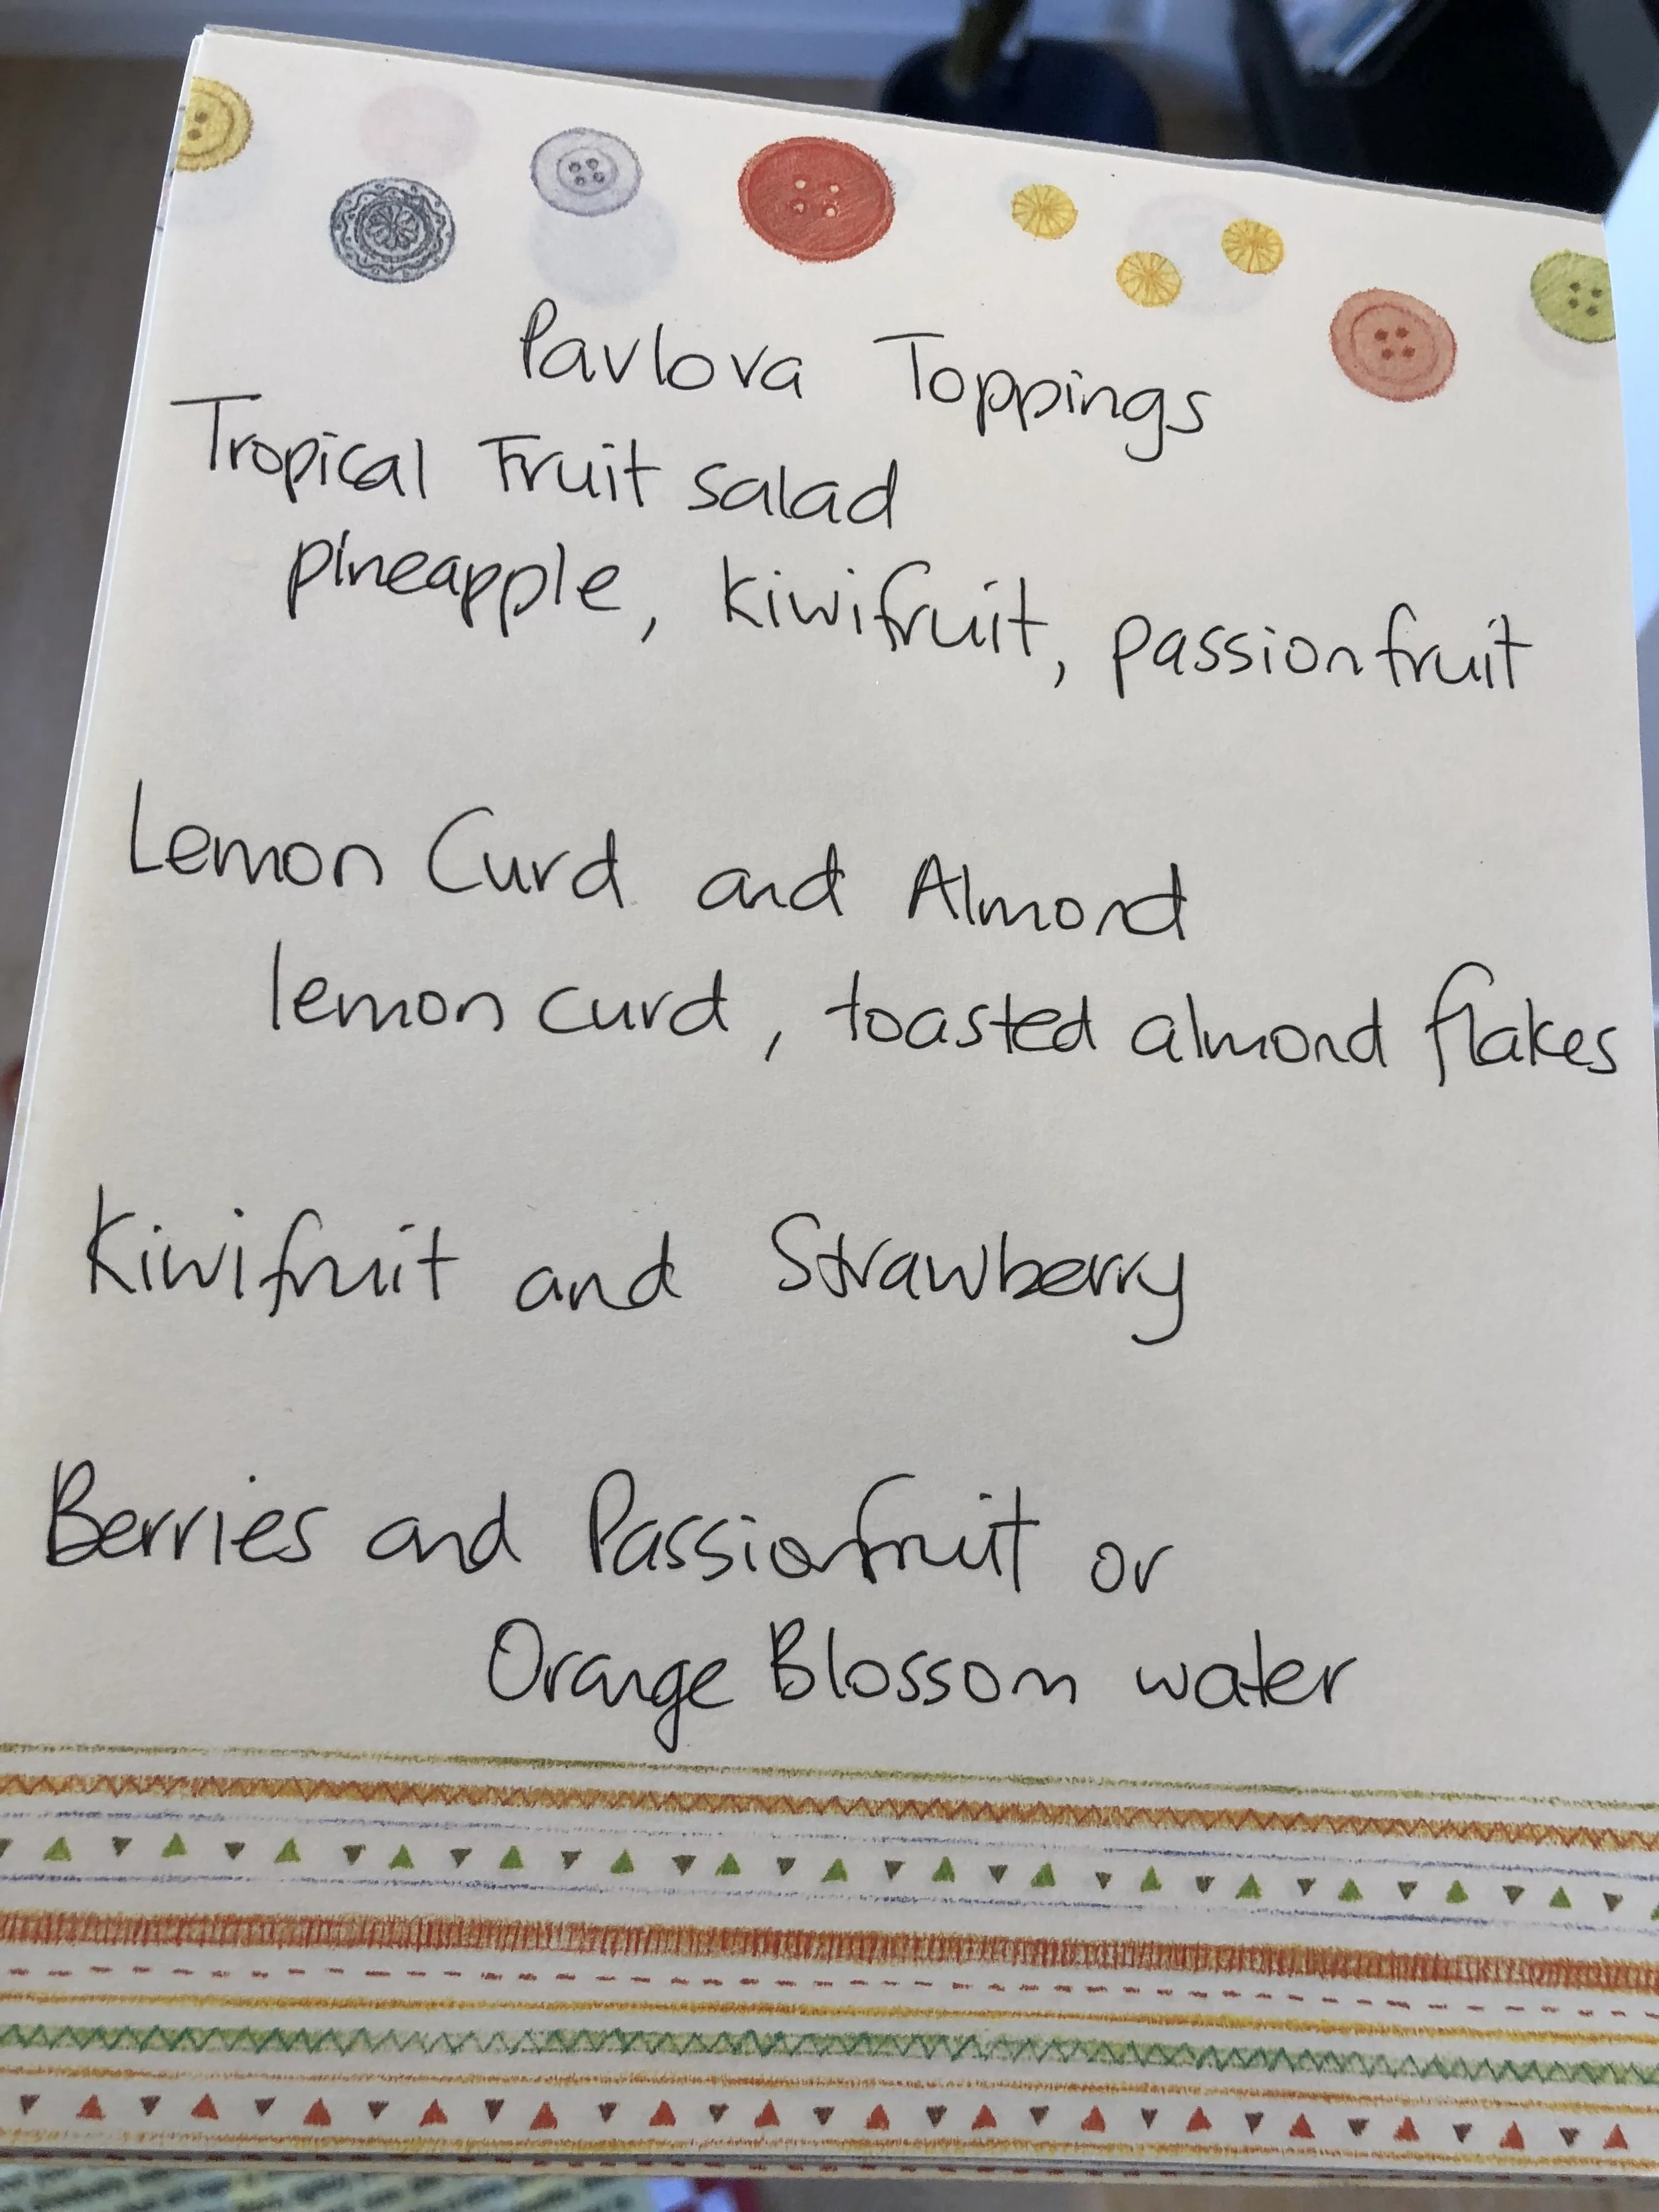 Pavlova Toppings
Tropical Fruit salad
pineapple, kiwifruit, passionfruit
Lemon Curd and Almond
lemon curd, toasted almond flakes
Kiwifruit and Strawberry
Berries and Passionfruit or
Orange Blossom water